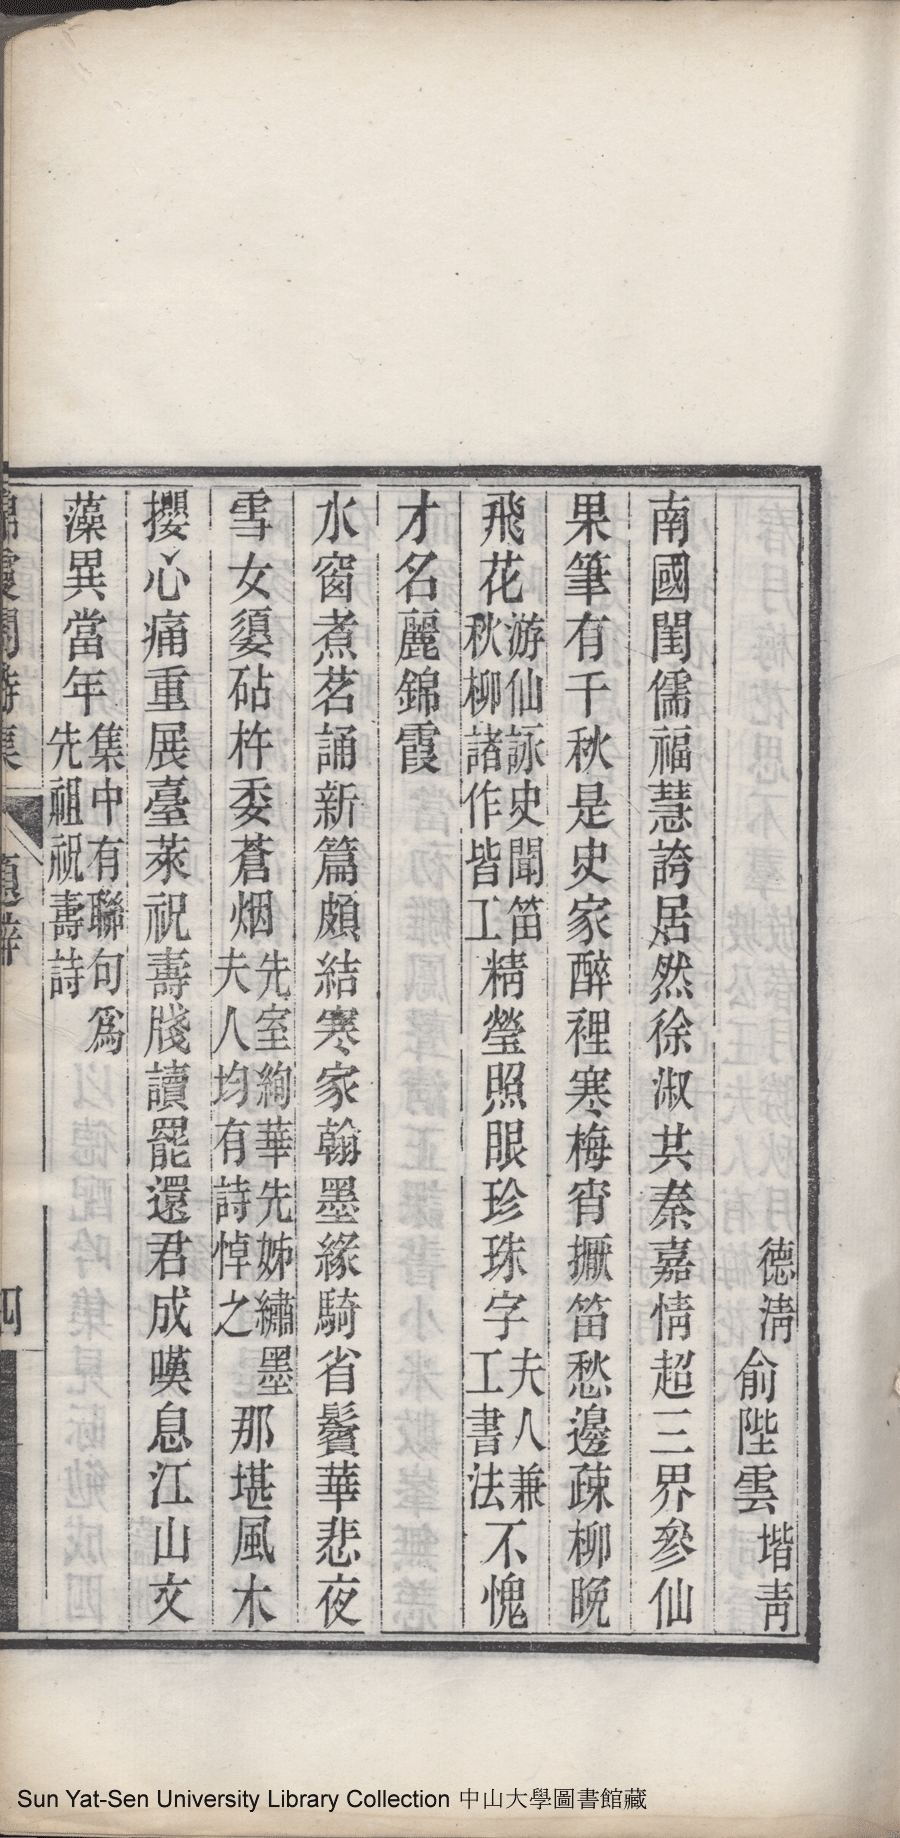 德淸俞陛雲堦靑
南國閨儒福慧誇居然徐淑共秦嘉情超三界參仙
果筆有千秋是史家醉裡寒梅宵擫笛愁邊疎柳晚
飛花游仙詠史聞笛秋柳諸作皆工精瑩照眼珍珠字夫人兼工書法不愧
才名麗錦霞
水窗煮茗誦新篇頗結寒家翰墨緣騎省鬢華悲夜
雪女嬃砧杵委蒼烟先室絢華先姊繡墨夫人均有詩悼之那堪風木
攖心痛重展臺萊祝壽牋讀罷還君成嘆息江山文
藻異當年集中有聯句爲先祖祝壽詩
錦霞閣詩集 題辭 四
Sun Yat-Sen University Library Collection 中山大學圖書館藏